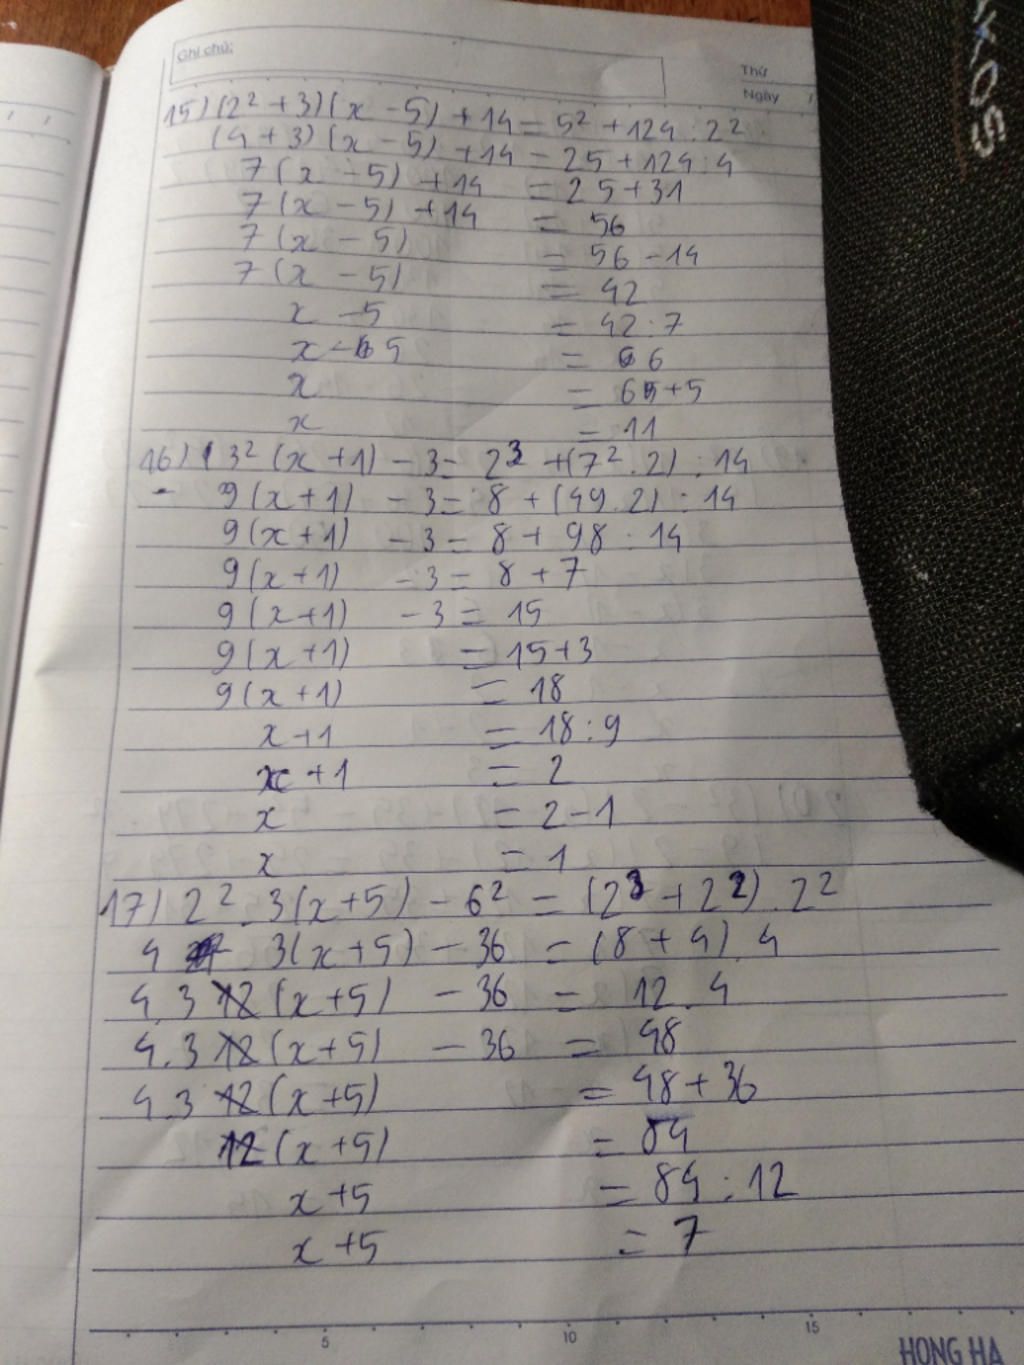 Ghi chú:
Thứ
Ngày
15) (2² + 3) (x - 5) + 14 = 5² + 124 : 2²
(4 + 3) (x - 5) + 14 = 25 + 124 : 4
7 (x - 5) + 14 = 25 + 31
7 (x - 5) + 14 = 56
7 (x - 5) = 56 - 14
7 (x - 5) = 42
x - 5 = 42 : 7
x - 5 = 6
x = 6 + 5
x = 11
16) 3² (x + 1) - 3 = 2³ + (7² . 2) : 14
9 (x + 1) - 3 = 8 + (49 . 2) : 14
9 (x + 1) - 3 = 8 + 98 : 14
9 (x + 1) - 3 = 8 + 7
9 (x + 1) - 3 = 15
9 (x + 1) = 15 + 3
9 (x + 1) = 18
x + 1 = 18 : 9
x + 1 = 2
x = 2 - 1
x = 1
17) 2² . 3 (x + 5) - 6² = (2³ + 2²) . 2²
4 . 3 (x + 5) - 36 = (8 + 4) . 4
4 . 3 (x + 5) - 36 = 12 . 4
4 . 3 (x + 5) - 36 = 48
4 . 3 (x + 5) = 48 + 36
12 (x + 5) = 84
x + 5 = 84 : 12
x + 5 = 7
5 10 15
HONG HA